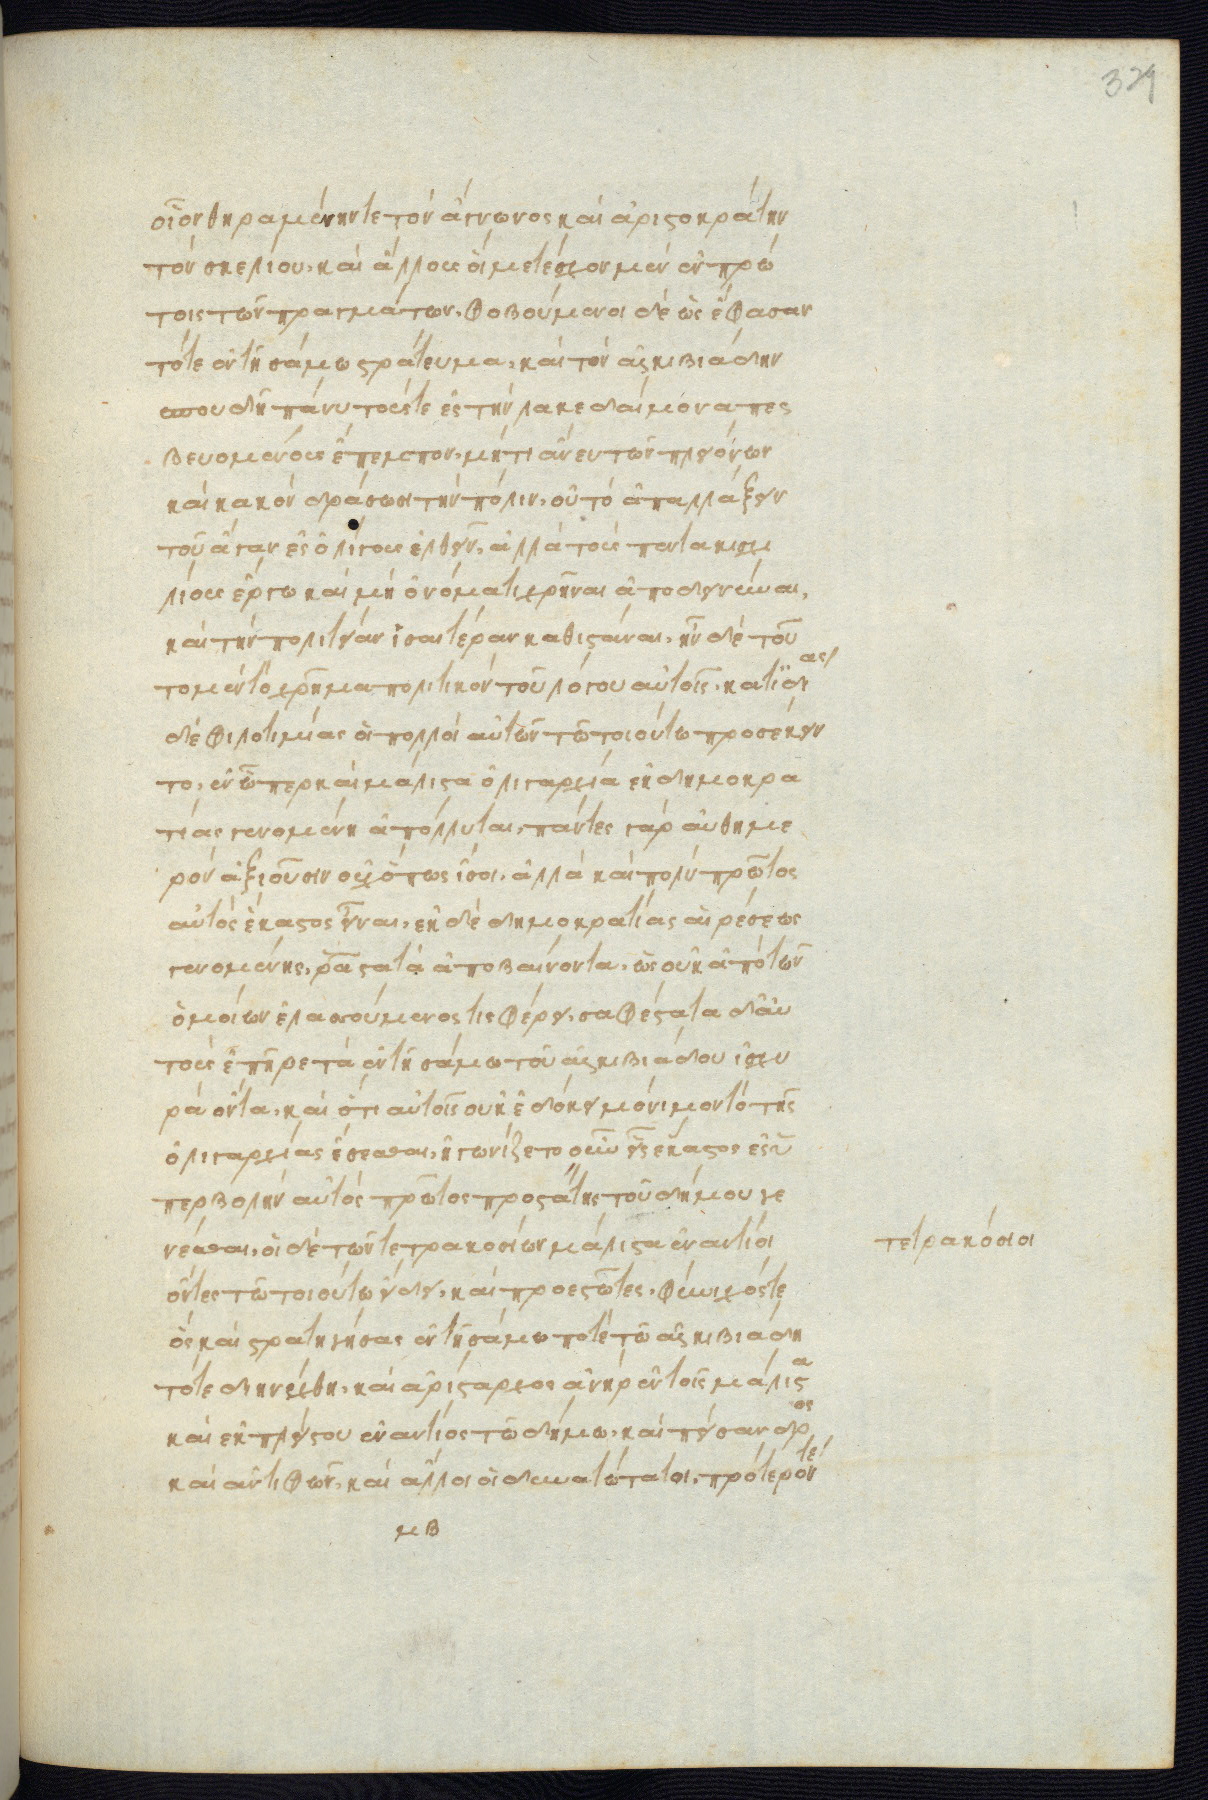 οἷον θηραμένην τε τὸν ἅγνωνος καὶ ἀριστοκράτην
τὸν σκελίου, καὶ ἄλλους οἳ μετέσχον μὲν ἐν πρώ
τοις τῶν πραγμάτων, φοβούμενοι δὲ ὡς ἔφασαν
τό τε ἐν τῇ σάμῳ στράτευμα, καὶ τὸν ἀλκιβιάδην
σπουδῇ πάνυ τούς τε ἐς τὴν λακεδαίμονα πεσ
βευομένους ἔπεμπον, μή τι ἄνευ τῶν πλειόνων
καὶ κακὸν δράσωσι τὴν πόλιν, οὐ τὸ ἀπαλλάξειν
τοῦ ἄγαν ἐς ὀλίγους ἐλθεῖν, ἀλλὰ τοὺς πεντακισχι
λίους ἔργῳ καὶ μὴ ὀνόματι χρῆναι ἀποδεικνύναι,
καὶ τὴν πολιτείαν ἰσαιτέραν καθιστάναι, ἦν δὲ τοῦ
το μὲν τὸ χρῆμα πολιτικὸν τοῦ λόγου αὐτοῖς, κατ' ἰδίας
δὲ φιλοτιμίας οἱ πολλοὶ αὐτῶν τῷ τοιούτῳ προσέκειν
το, ἐν ᾧπερ καὶ μάλιστα ὀλιγαρχία ἐκ δημοκρα
τίας γενομένη ἀπόλλυται, πάντες γὰρ αὐθημε
ρὸν ἀξιοῦσιν οὐχ ὅπως ἴσοι, ἀλλὰ καὶ πολὺ πρῶτος
αὐτὸς ἕκαστος εἶναι, ἐκ δὲ δημοκρατίας αἱρέσεως
γενομένης, ῥᾷστα τὰ ἀποβαίνοντα, ὡς οὐκ ἀπὸ τῶν
ὁμοίων ἐλασσούμενός τις φέρει, σαφέστατα δ' αὐ
τοὺς ἐπῆρε τὰ ἐν τῇ σάμῳ τοῦ ἀλκιβιάδου ἰσχυ
ρὰ ὄντα, καὶ ὅτι αὐτοῖς οὐκ ἐδόκει μόνιμον τὸ τῆς
ὀλιγαρχίας ἔσεσθαι, ἠγωνίζετο οὖν εἷς ἕκαστος ἐς ὑ
περβολὴν αὐτὸς πρῶτος προστάτης τοῦ δήμου γε
νέσθαι, οἱ δὲ τῶν τετρακοσίων μάλιστα ἐναντίοι
ὄντες τῷ τοιούτῳ εἴδει, καὶ προεστῶτες, φρύνιχός τε
ὃς καὶ στρατηγήσας ἐν τῇ σάμῳ ποτὲ τῷ ἀλκιβιάδῃ
τότε διηνέχθη, καὶ ἀρίσταρχος ἀνὴρ ἐν τοῖς μάλιστα
καὶ ἐκ πλείστου ἐναντίος τῷ δήμῳ, καὶ πείσανδρος
καὶ ἀντιφῶν, καὶ ἄλλοι οἱ δυνατώτατοι, πρότερόν τε
τετρακόσιοι
μβ